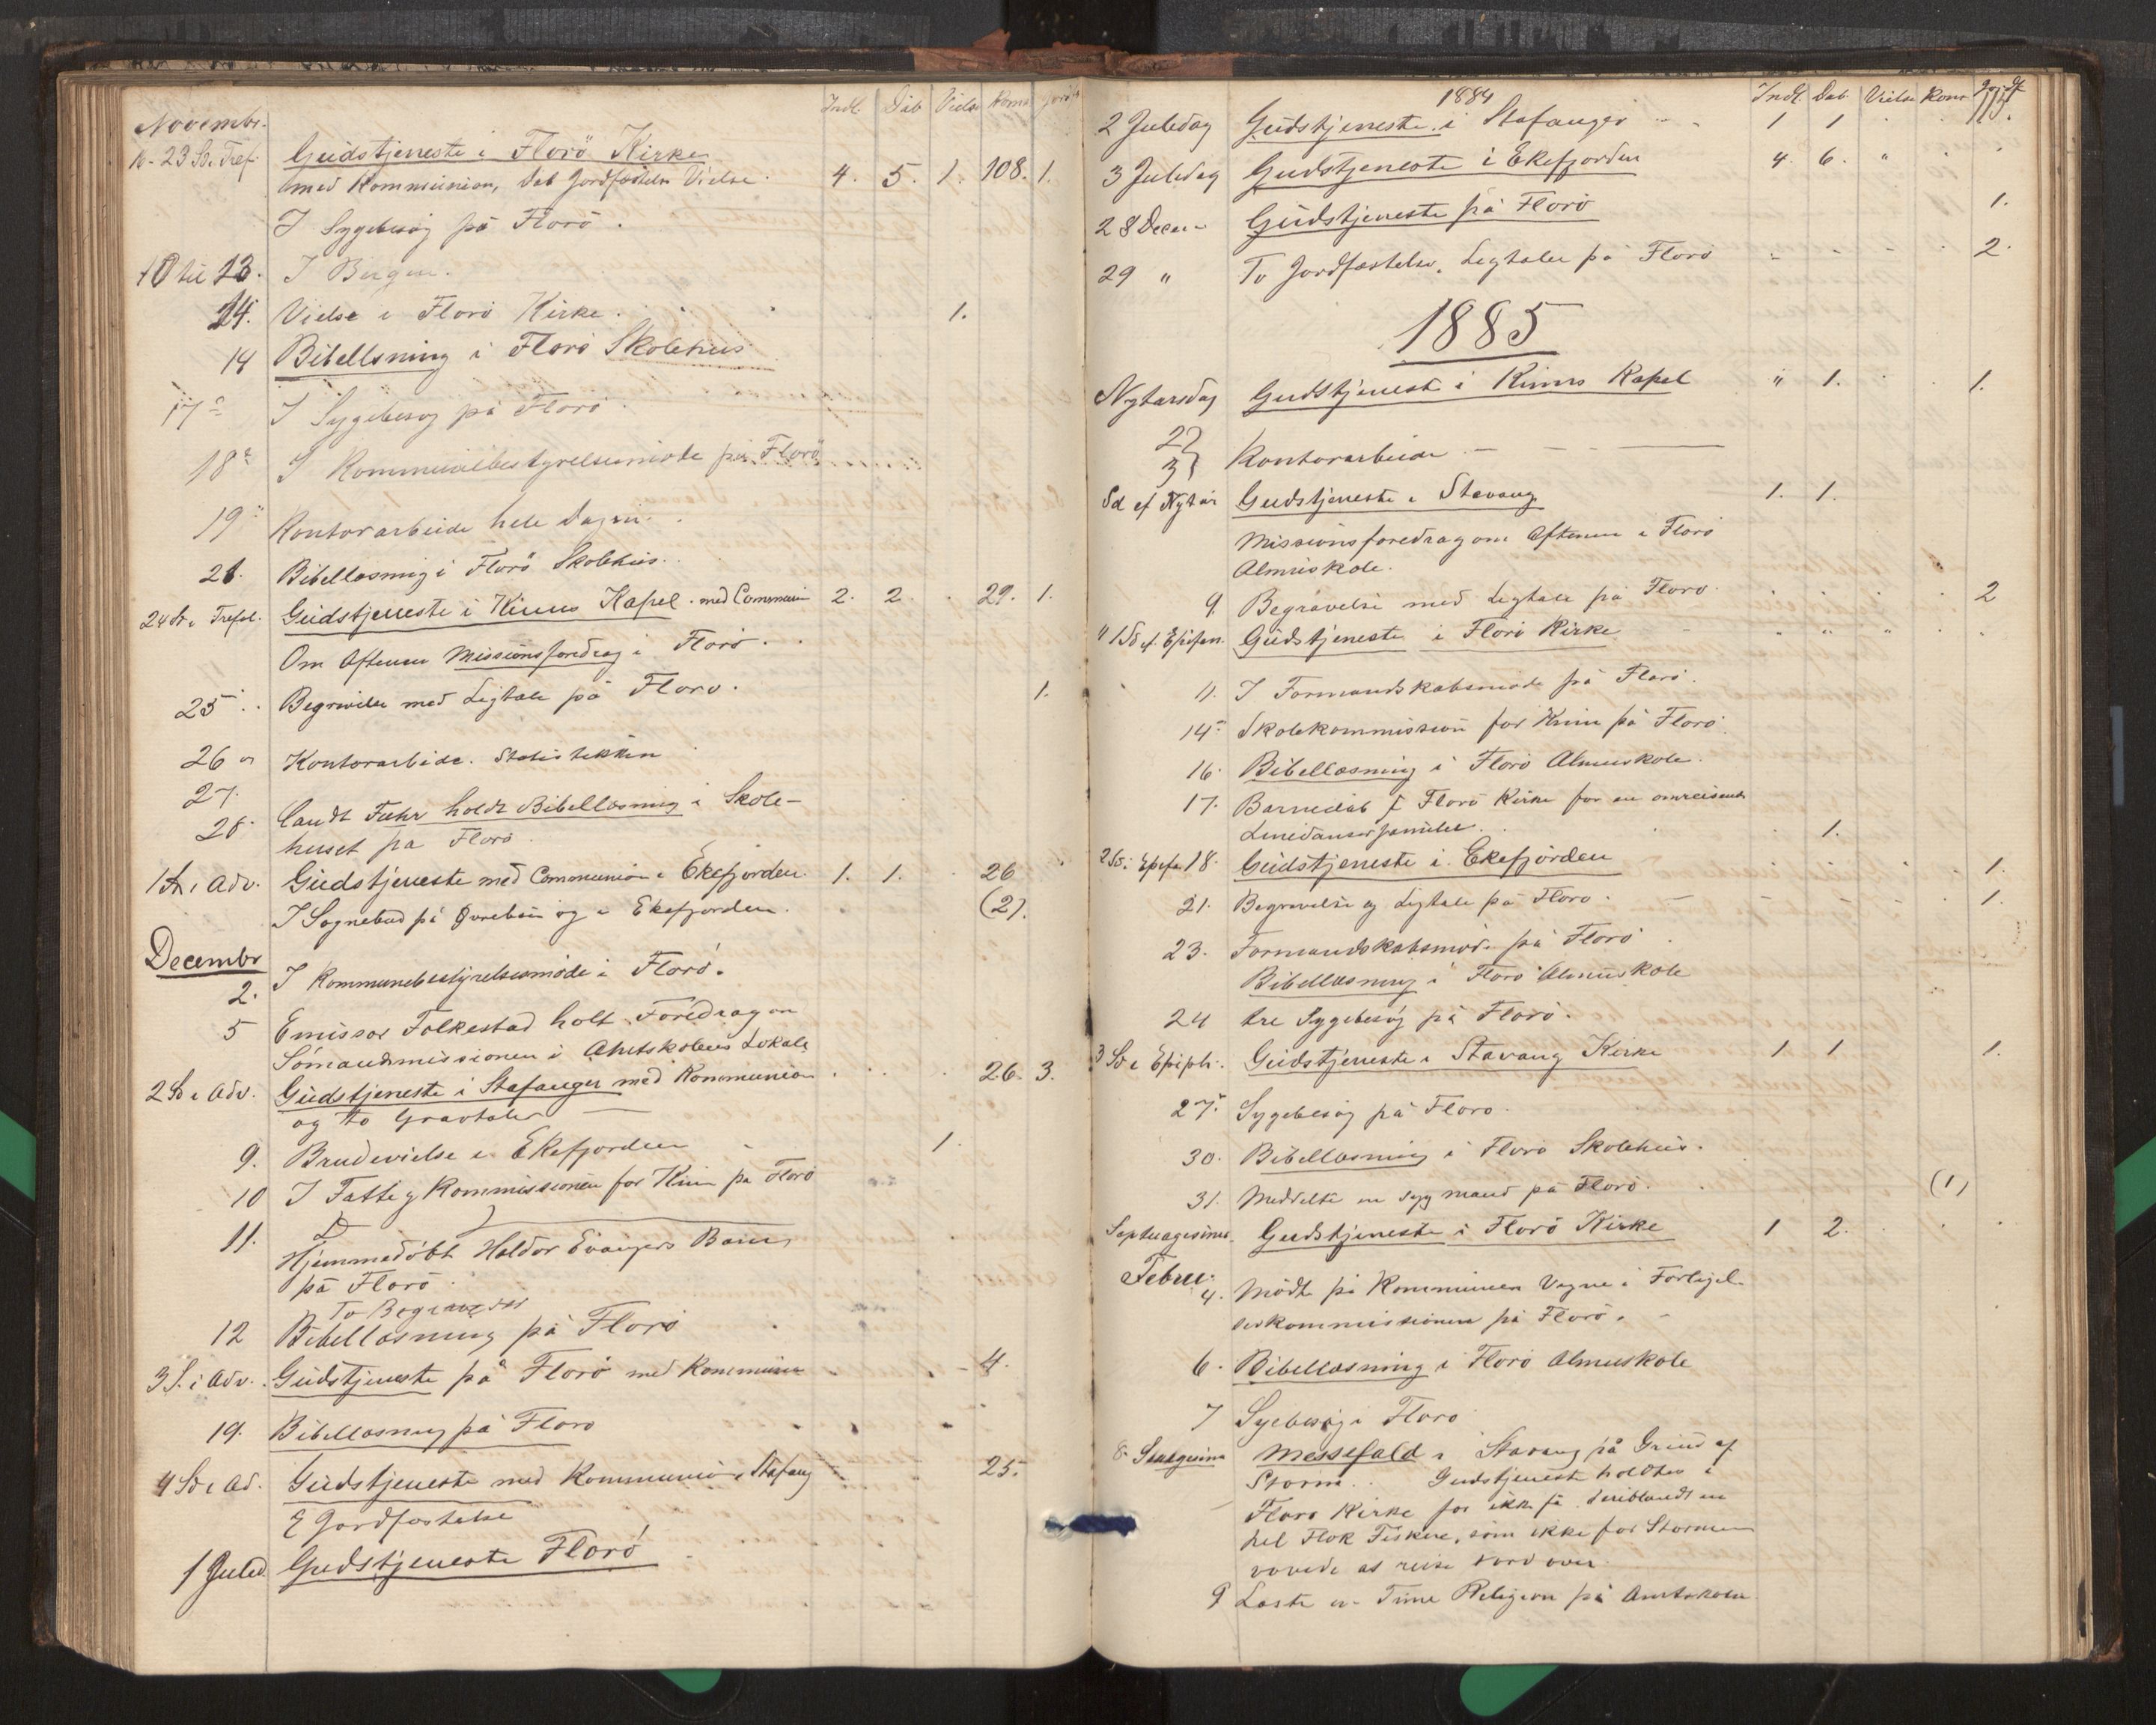 Indl. Dåb Vielse Kom. Jordf
Novembr.
23 S. e. Tref. Gudstjeneste i Florö Kirke
med Kommunion, Dåb Jordfæstelse Vielse. 4. 5. 1. 108. 1.
I Sygebesög på Florö.
10 til 13. I Bergen.
14. Vielse i Florö Kirke. 1.
14 Bibellæsning i Florö Skolehus
17 I Sygebesög på Florö
18 I Kommunebestyrelsesmöde på Florö
19 Kontorarbeide hele Dagen.
21. Bibellæsning i Florö Skolehus.
24 S. e. Trefol. Gudstjeneste i Kinns Kapel. med Communion 2. 2. 29. 1.
Om Aftenen Missionsforedrag i Florö.
25 Begravelse med Ligtale på Florö. 1.
26 Kontorarbeide. Statistikken
27.
28 Candt Fuhr holdt Bibellæsning i Skole-
huset på Florö
1 S. i Adv. Gudstjeneste med Communion i Ekefjorden. 1. 1. 26
I Sognebud på og i Ekefjorden. (2).
Decembr
2. I Kommunebestyrelsesmöde i Florö.
5 Emissær Folkestad holt Foredrag om
Sömandsmissionen i Amtskolens Lokale
2 S. i Adv. Gudstjeneste i Stafanger med Kommunion 26. 3.
og to Gravtaler
9. Brudevielse i Ekefjorden 1.
10 I Fattigkommissionen for Kinn på Florö
11. Hjemmedöbt Haldor Evangers Barn
på Florö.
To Begravelser
12 Bibellæsning på Florö
3 S. i Adv. Gudstjeneste på Florö med Kommunion 4.
19. Bibellæsning på Florö
4 S. i Ad. Gudstjeneste med Kommunion i Stafang 25.
E Jordfæstelse
1 Juled. Gudstjeneste Florö
1884 Indl. Dåb. Vielse Kom Jordf
115.
2 Juledag Gudstjeneste i Stafanger 1 1
3 Juledag Gudstjeneste i Ekefjorden 4. 6. "
28 Decem Gudstjeneste på Florö 1.
29 " To Jordfæstelse, Ligtaler på Florö 2.
1885
Nytårsdag Gudstjeneste i Kinns Kapel " 1. 1.
2}
3} Kontorarbeide
Sd ef Nytår Gudstjeneste i Stavang 1. 1.
Missionsforedrag om Aftenen i Florö
Almuskole.
9. Begravelse med Ligtale på Florö. 2
1 Sd ef. Epifan. Gudstjeneste i Florö Kirke
11. I Formandskabsmöde på Florö.
14 Skolekommission for Kinn på Florö.
16. Bibellæsning i Florö Almuskole.
17. Barnedåb i Florö Kirke for en omreisende
Linedanserfamilie. 1.
2 S. e. Epifa 18. Gudstjeneste i Ekefjorden 1.
21. Begravelse og Ligtale på Florö. 1.
23. Formandskabsmöde på Florö
Bibellæsning i Florö Almuskole
24 tre Sygebesög på Florö.
3 S. e. Epiph. Gudstjeneste i Stavang Kirke 1 1 1.
27. Sygebesög på Florö.
30. Bibellæsning i Florö Skolehus.
31. Meddelte en syg mand på Florö. (1)
Septuagesima. Gudstjeneste i Florö Kirke 1 2.
Febru.
4. Mödte på Kommunens Vegne i Forligel-
seskommissionen på Florö.
6. Bibellæsning i Florö Almuskole
7 Sygebesög i Florö
8. Sexagesima Messefald i Stavang på Grund af
Storm. Gudstjeneste holdtes i
Florö Kirke for ikke få deriblandt en
hel Flok Fiskere, som ikke for Stormen
vovede at reise over.
9 Læste en Time Religion på Amtskolen